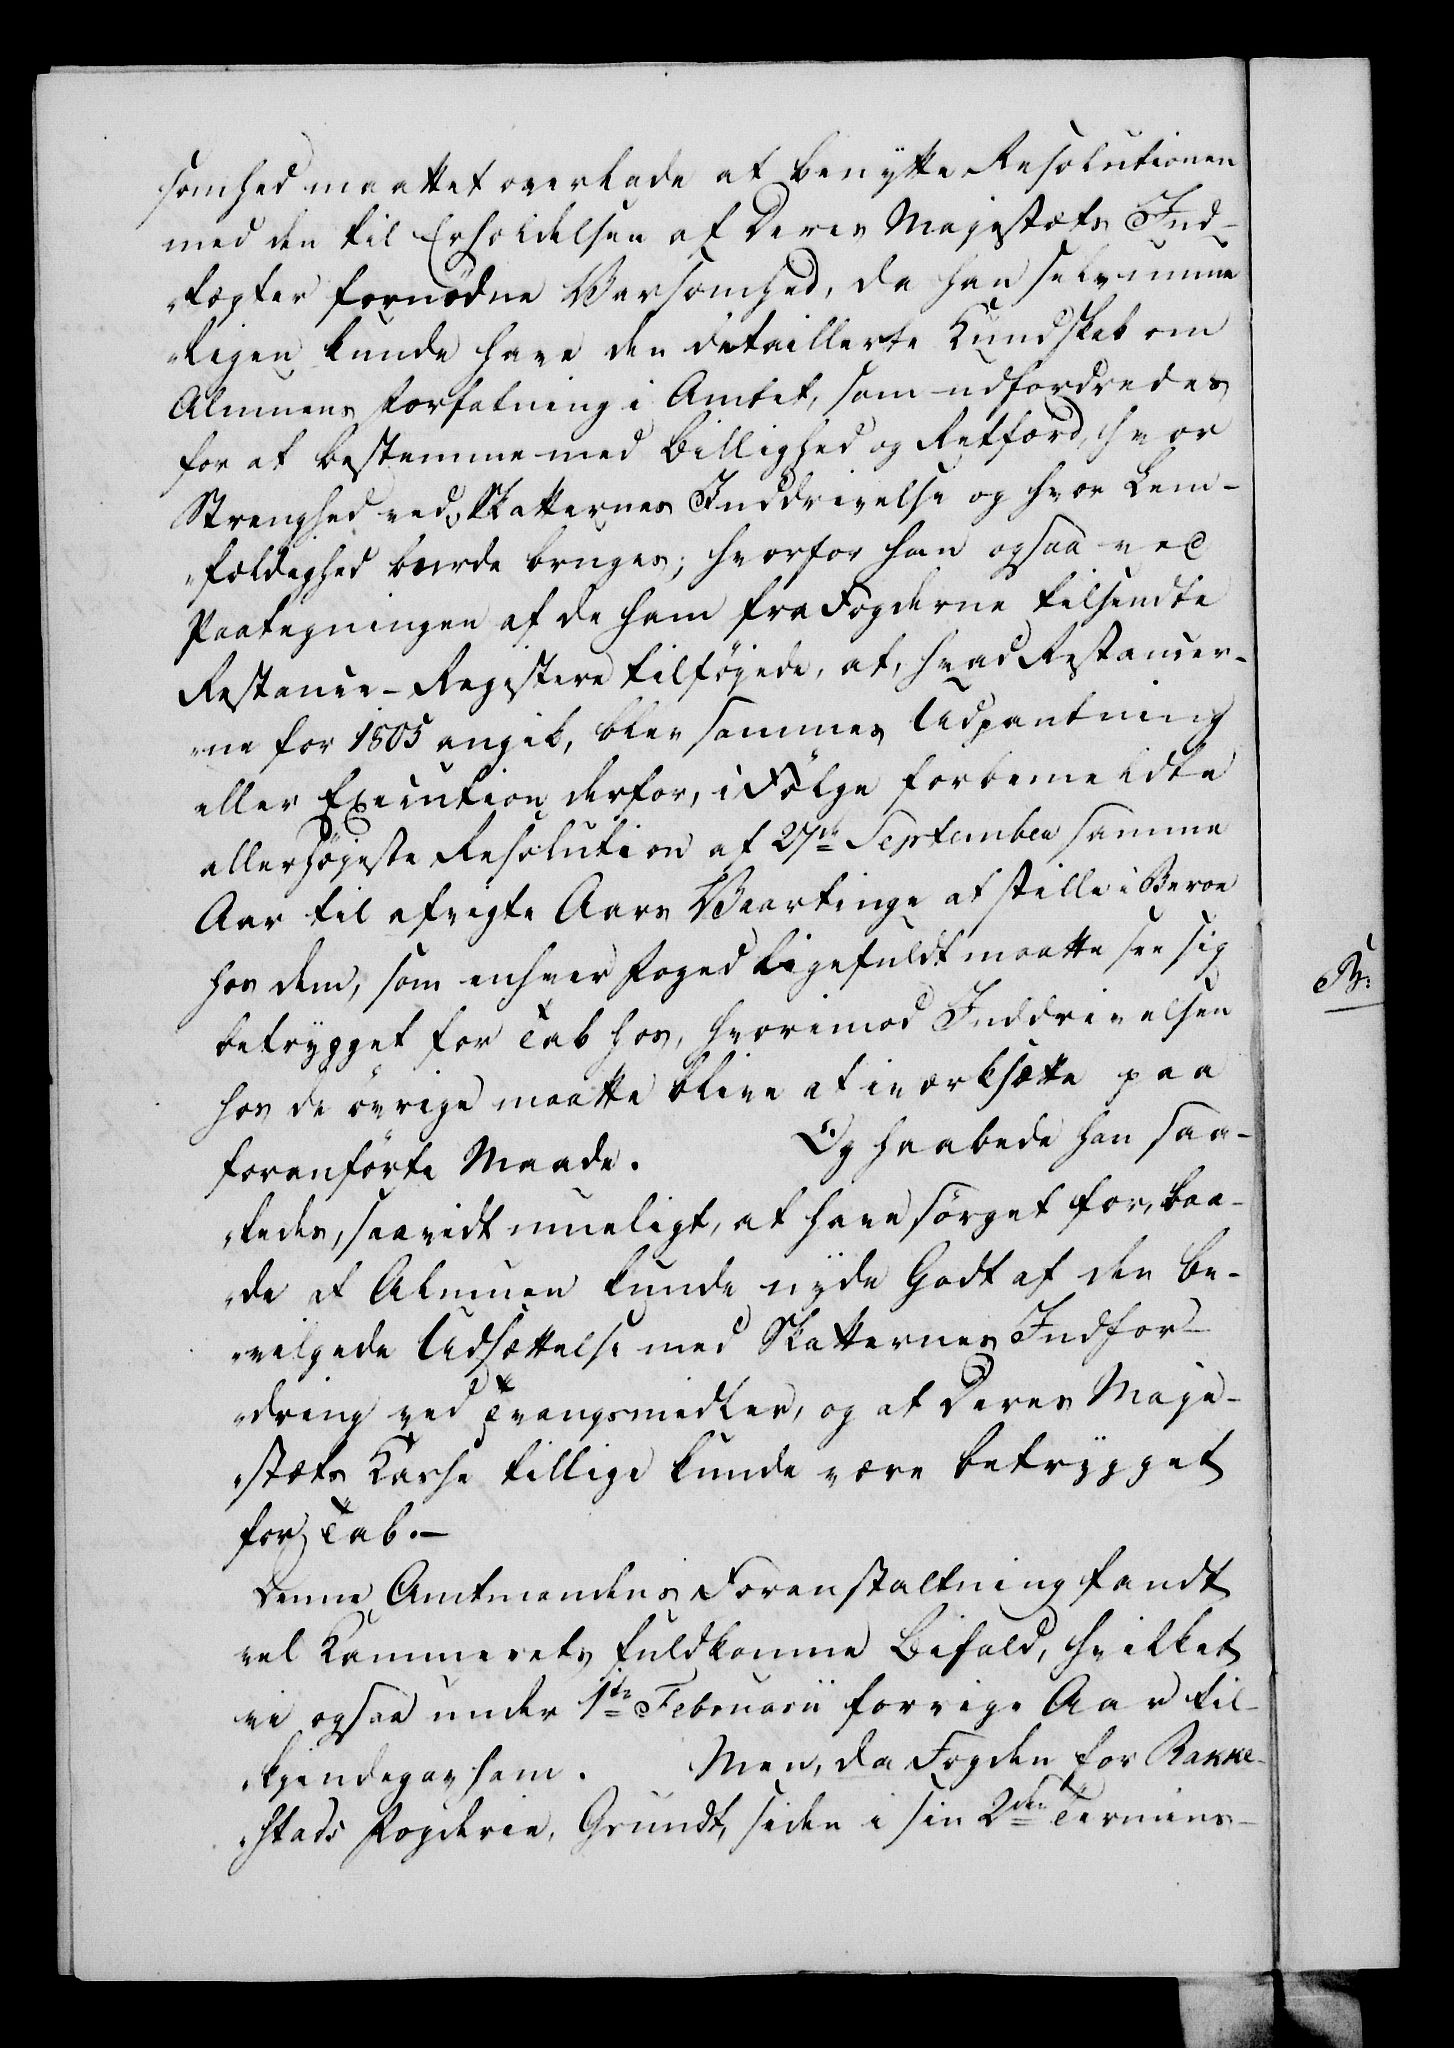 somhed maattet overlade at benytte Resolutionen
med den til Erholdelsen af Deres Majestæts Ind-
„tægter fornødne Varsomhed, da han selv umue
„ligen kunde have den detaillerte Kundskab om
Almuens Forfatning i Amtet, som udfordredes
for at bestemme med Billighed og Retfærd, hvor
Strenghed ved Skatternes Inddrivelse og hvor Lem-
„fældighed burde bruges; hvorfor han ogsaa ved
Paategningen af de ham fra Fogderne tilsendte
Restance-Registere tilføjede, at, hvad Restancer-
„ne for 1805 angik, blev sammes Udpantning
eller Execution derfor, i Følge forbemeldte
allerhøjeste Resolution af 27de September samme
Aar til afvigte Aars Vaartinge at stille i Beroe
hos dem, som enhver Foged ligefuldt maatte see sig
betrygget for Tab hos, hvorimod Inddrivelsen
hos de øvrige maatte blive at iværksætte paa
foranførte Maade. Og haabede han saa-
„ledes, saavidt mueligt, at have sørget for, baa-
„de at Almuen kunde nyde Godt af den be-
„vilgede Udsættelse med Skatternes Indfor-
„dring ved Tvangsmidler, og at Deres Maje-
„stæts Kasse tillige kunde være betrygget
for Tab.-
Denne Amtmandens Foranstaltning fandt
vel Kammerets fuldkomne Bifald, hvilket
vi ogsaa under 1ste Februarii forrige Aar til-
„kjendegav ham. Men, da Fogden for Rakke-
„stads Fogderie, Grundt, siden i sin 2den Termins-
B: